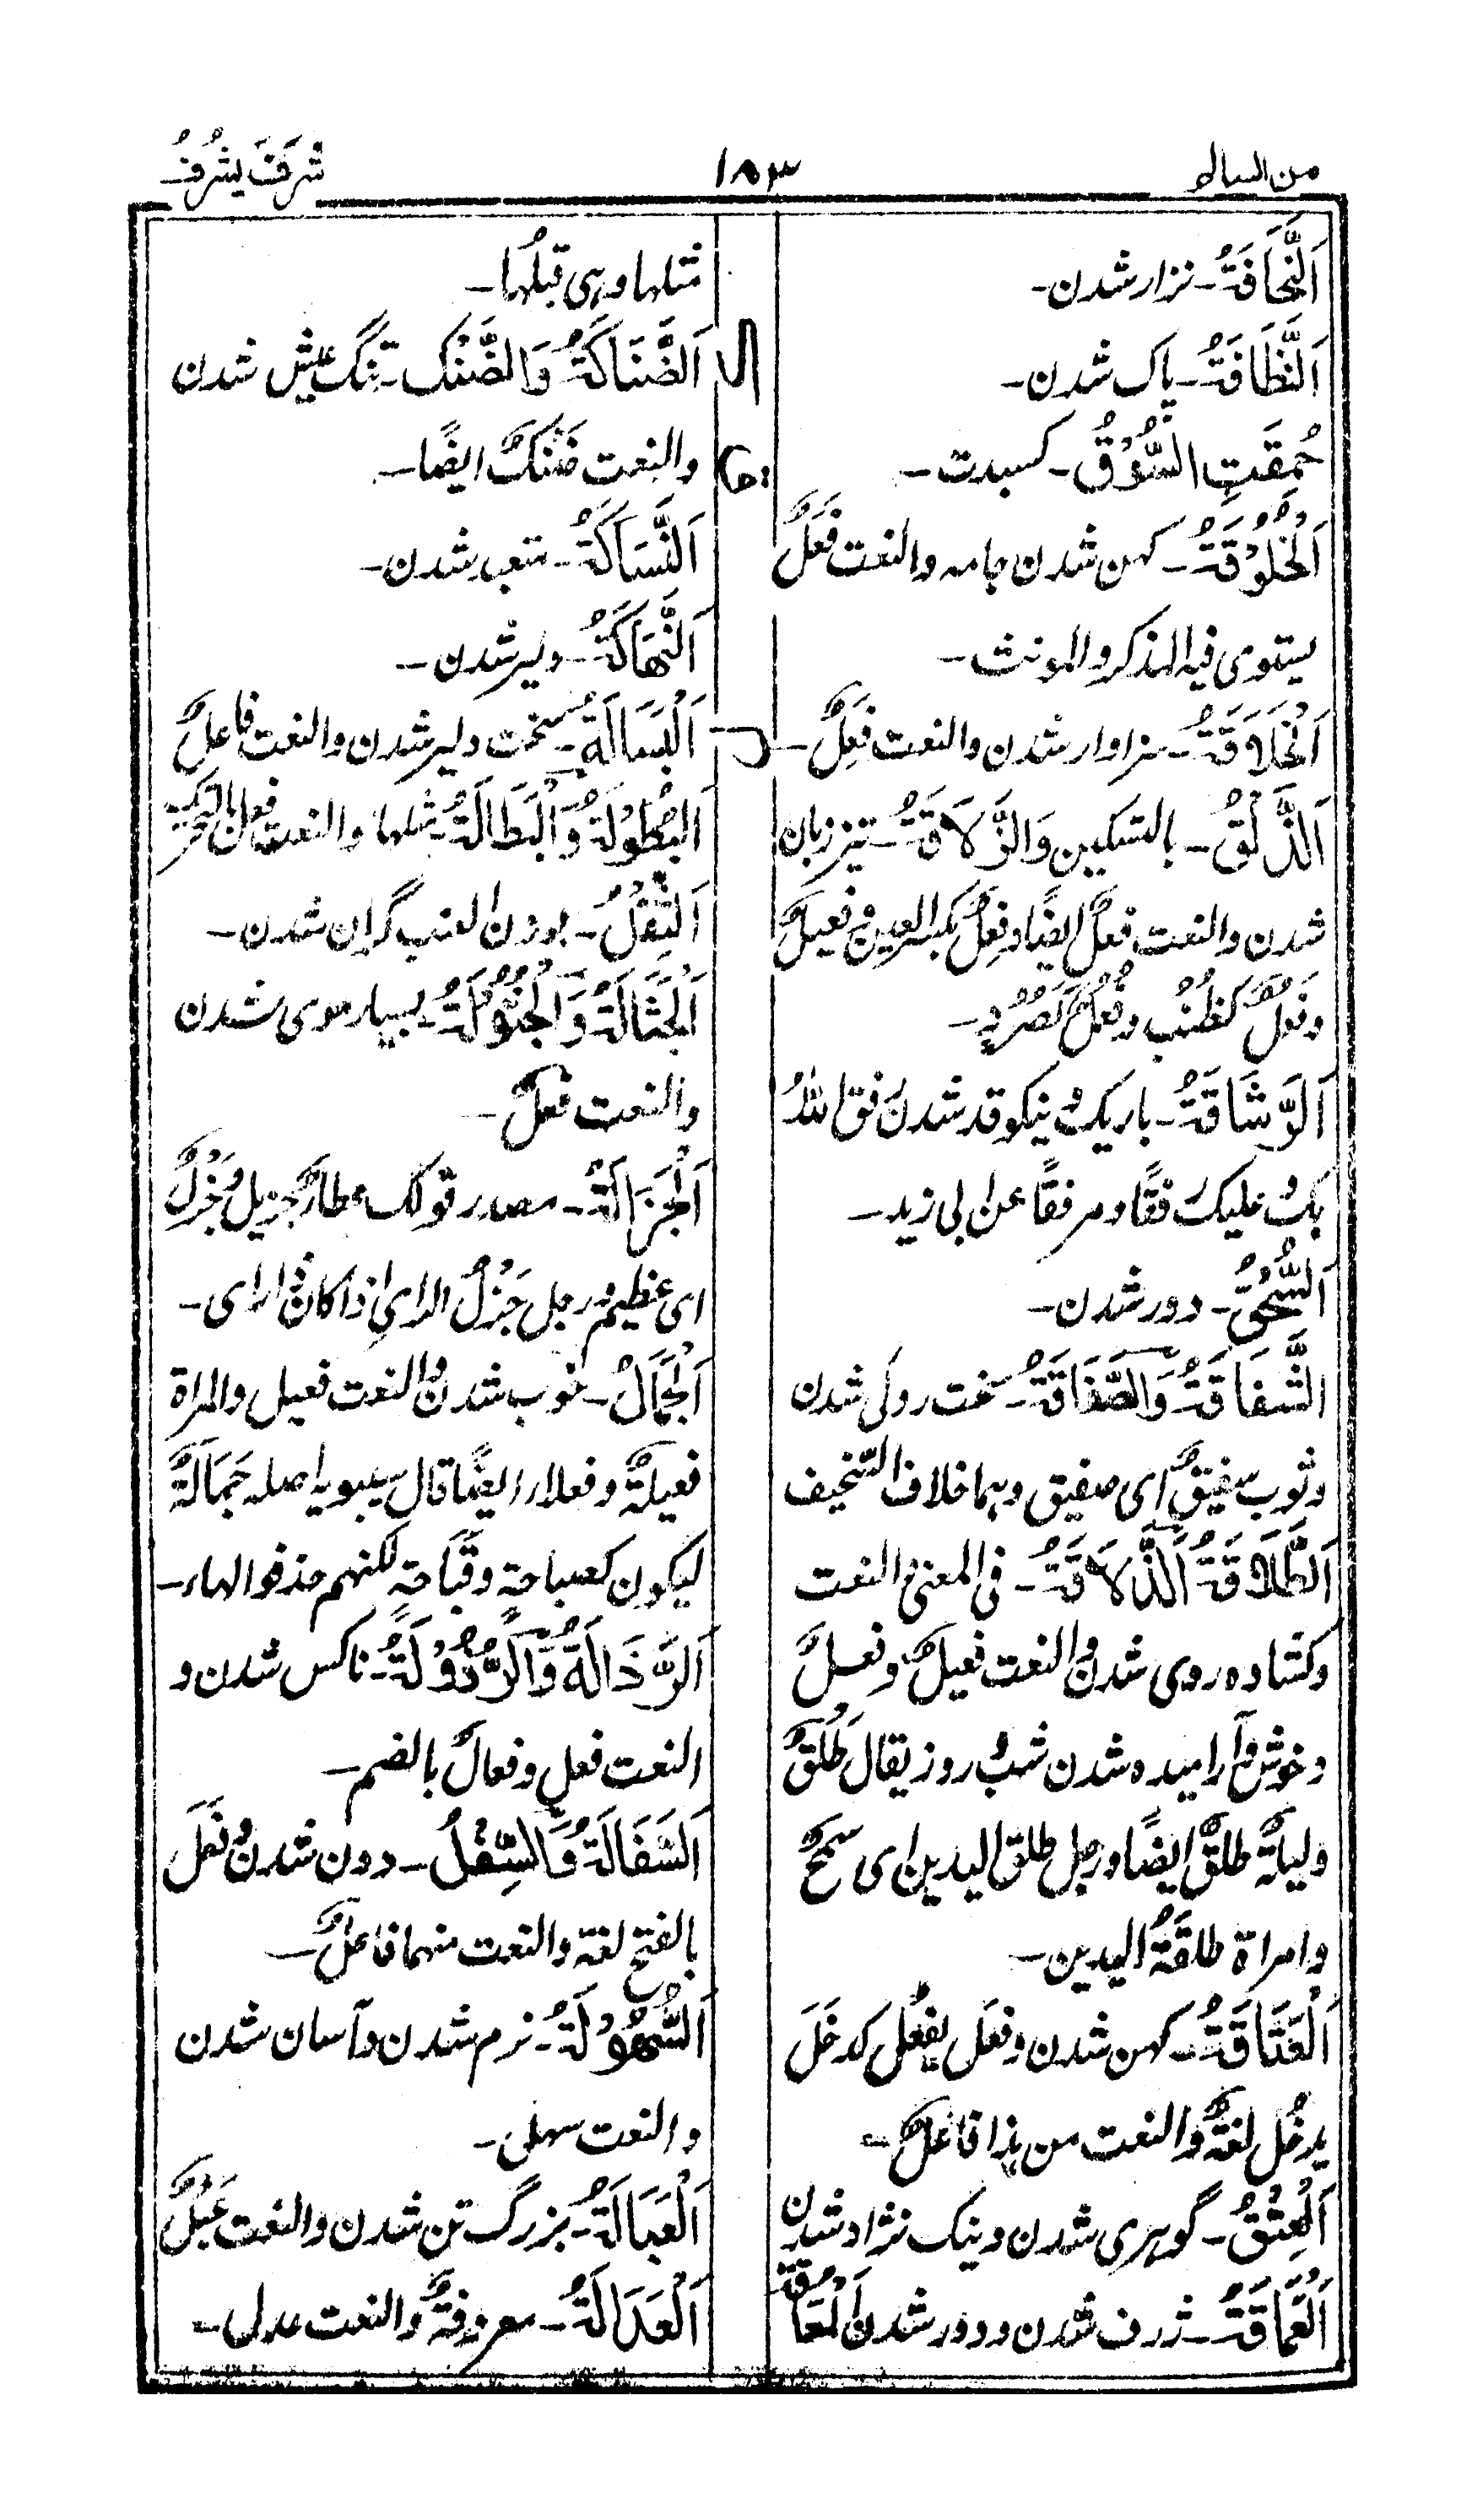 من السالم
١٨٣
شَرَفَ يَشْرُفُ
اَلنَّحَافَةُ - نزار شدن -
اَلنَّظَافَةُ - پاک شدن -
حُمِقَتِ السُّوْقُ - کسدت -
اَلْخُلُوْقَةُ - کهن شدن جامه والنعت فَعَلٌ
یستوی فیه المذکر والمونث -
اَلْخَلَاقَةُ - سزاوار شدن والنعت فَعِلٌ -
اَلذَّلْقُ - بالتسکین وَالذَّلَاقَةُ - تیز زبان
شدن والنعت فعلٌ ایضًا وفعِلٌ بکسر العین وفعیلٌ
وفعلٌ کطُنُب وفُعَلٌ کصُرَدٍ -
اَلرَّشَاقَةُ - باریک و نیکو قد شدن رفق اللهُ
بک و علیک رفقًا و مرفقًا عن ابی زید -
اَلسُّحْقُ - دور شدن -
السَّفَاقَةُ وَالصَّفَاقَةُ - سخت روی شدن
وثوب سفیقٌ ای صفیق وهما خلاف السّخیف
اَلطَّلَاقَةُ اَلذَّلَاقَةُ - فی المعنی والنعت
وکشاده روی شدن والنعت فعیلٌ وفعلٌ
وخوش وآرامیده شدن شب و روز یقال طَلْقٌ
ولیلةٌ طلقٌ ایضًا ورجل طلق الیدین ای سمحٌ
وامراة طلقَةُ الیدین -
اَلْعَتَاقَةُ - کهن شدن وفعَل یفعُل کدخَلَ
یدخُل لغةٌ والنعت من هذا فاعلٌ -
اَلْعِتْقُ - گوهری شدن و نیک نژاد شدن
اَلْعَمَاقَةُ - ژرف شدن و دور شدن اَلْمَعَاقَةُ
مثلها وهی قبلُها -
اَلضَّنَاکَةُ وَالضَّنْک - تنگ عیش شدن
والنعت ضَنْکٌ ایضًا -
اَلنَّسَاکَةُ - متعبد شدن -
اَلنَّهَاکَةُ - دلیر شدن -
اَلْبَسَالَةُ - سخت دلیر شدن والنعت فاعلٌ
اَلْبُطُوْلَةُ وَالْبَطَالَةُ - مثلها والنعت فعل بالتحریک
اَلثِّقْلُ - بوزن العنب گران شدن -
اَلْجَثَالَةُ وَالْجُثُوْلَةُ - بسیار موی شدن
والنعت فعلٌ -
اَلْجَزَالَةُ - مصدر قولک عطاءٌ جزیل وجَزْلٌ
ای عظیم ورجل جَزْلُ الرای اذا کان ذا رای -
اَلْجَمَالُ - خوب شدن والنعت فعیل والمراة
فعیلةٌ وفعلاء ایضًا قال سیبویه اصله جَمَالَةٌ
لیکون کصباحةٍ وقَبَاحةٍ لکنهم حذفوا الهاء -
اَلرَّذَالَةُ وَالرُّذُوْلَةُ - ناکس شدن و
النعت فعل وفعالٌ بالضم -
اَلسَّفَالَةُ وَالسِّفْلُ - دون شدن وفعَلَ
بالفتح لغة والنعت منهما فاعلٌ -
اَلسُّهُوْلَةُ - نرم شدن وآسان شدن
والنعت سهل -
اَلْعَبَالَةُ - بزرگ تن شدن والنعت عَبْلٌ
اَلْعَدَالَةُ - معروفةٌ والنعت عدل -